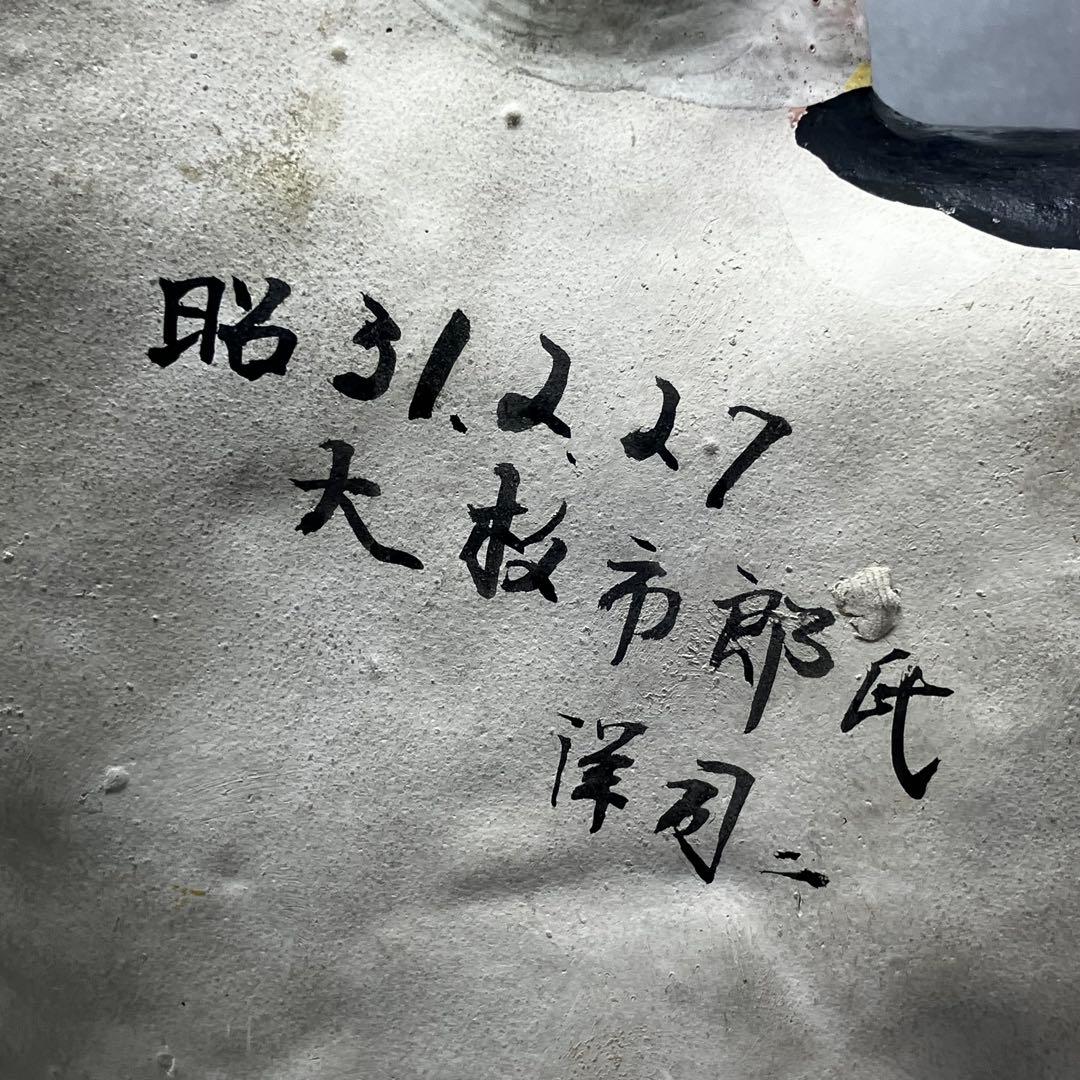 昭31.2.27
大板市郎氏
洋司二